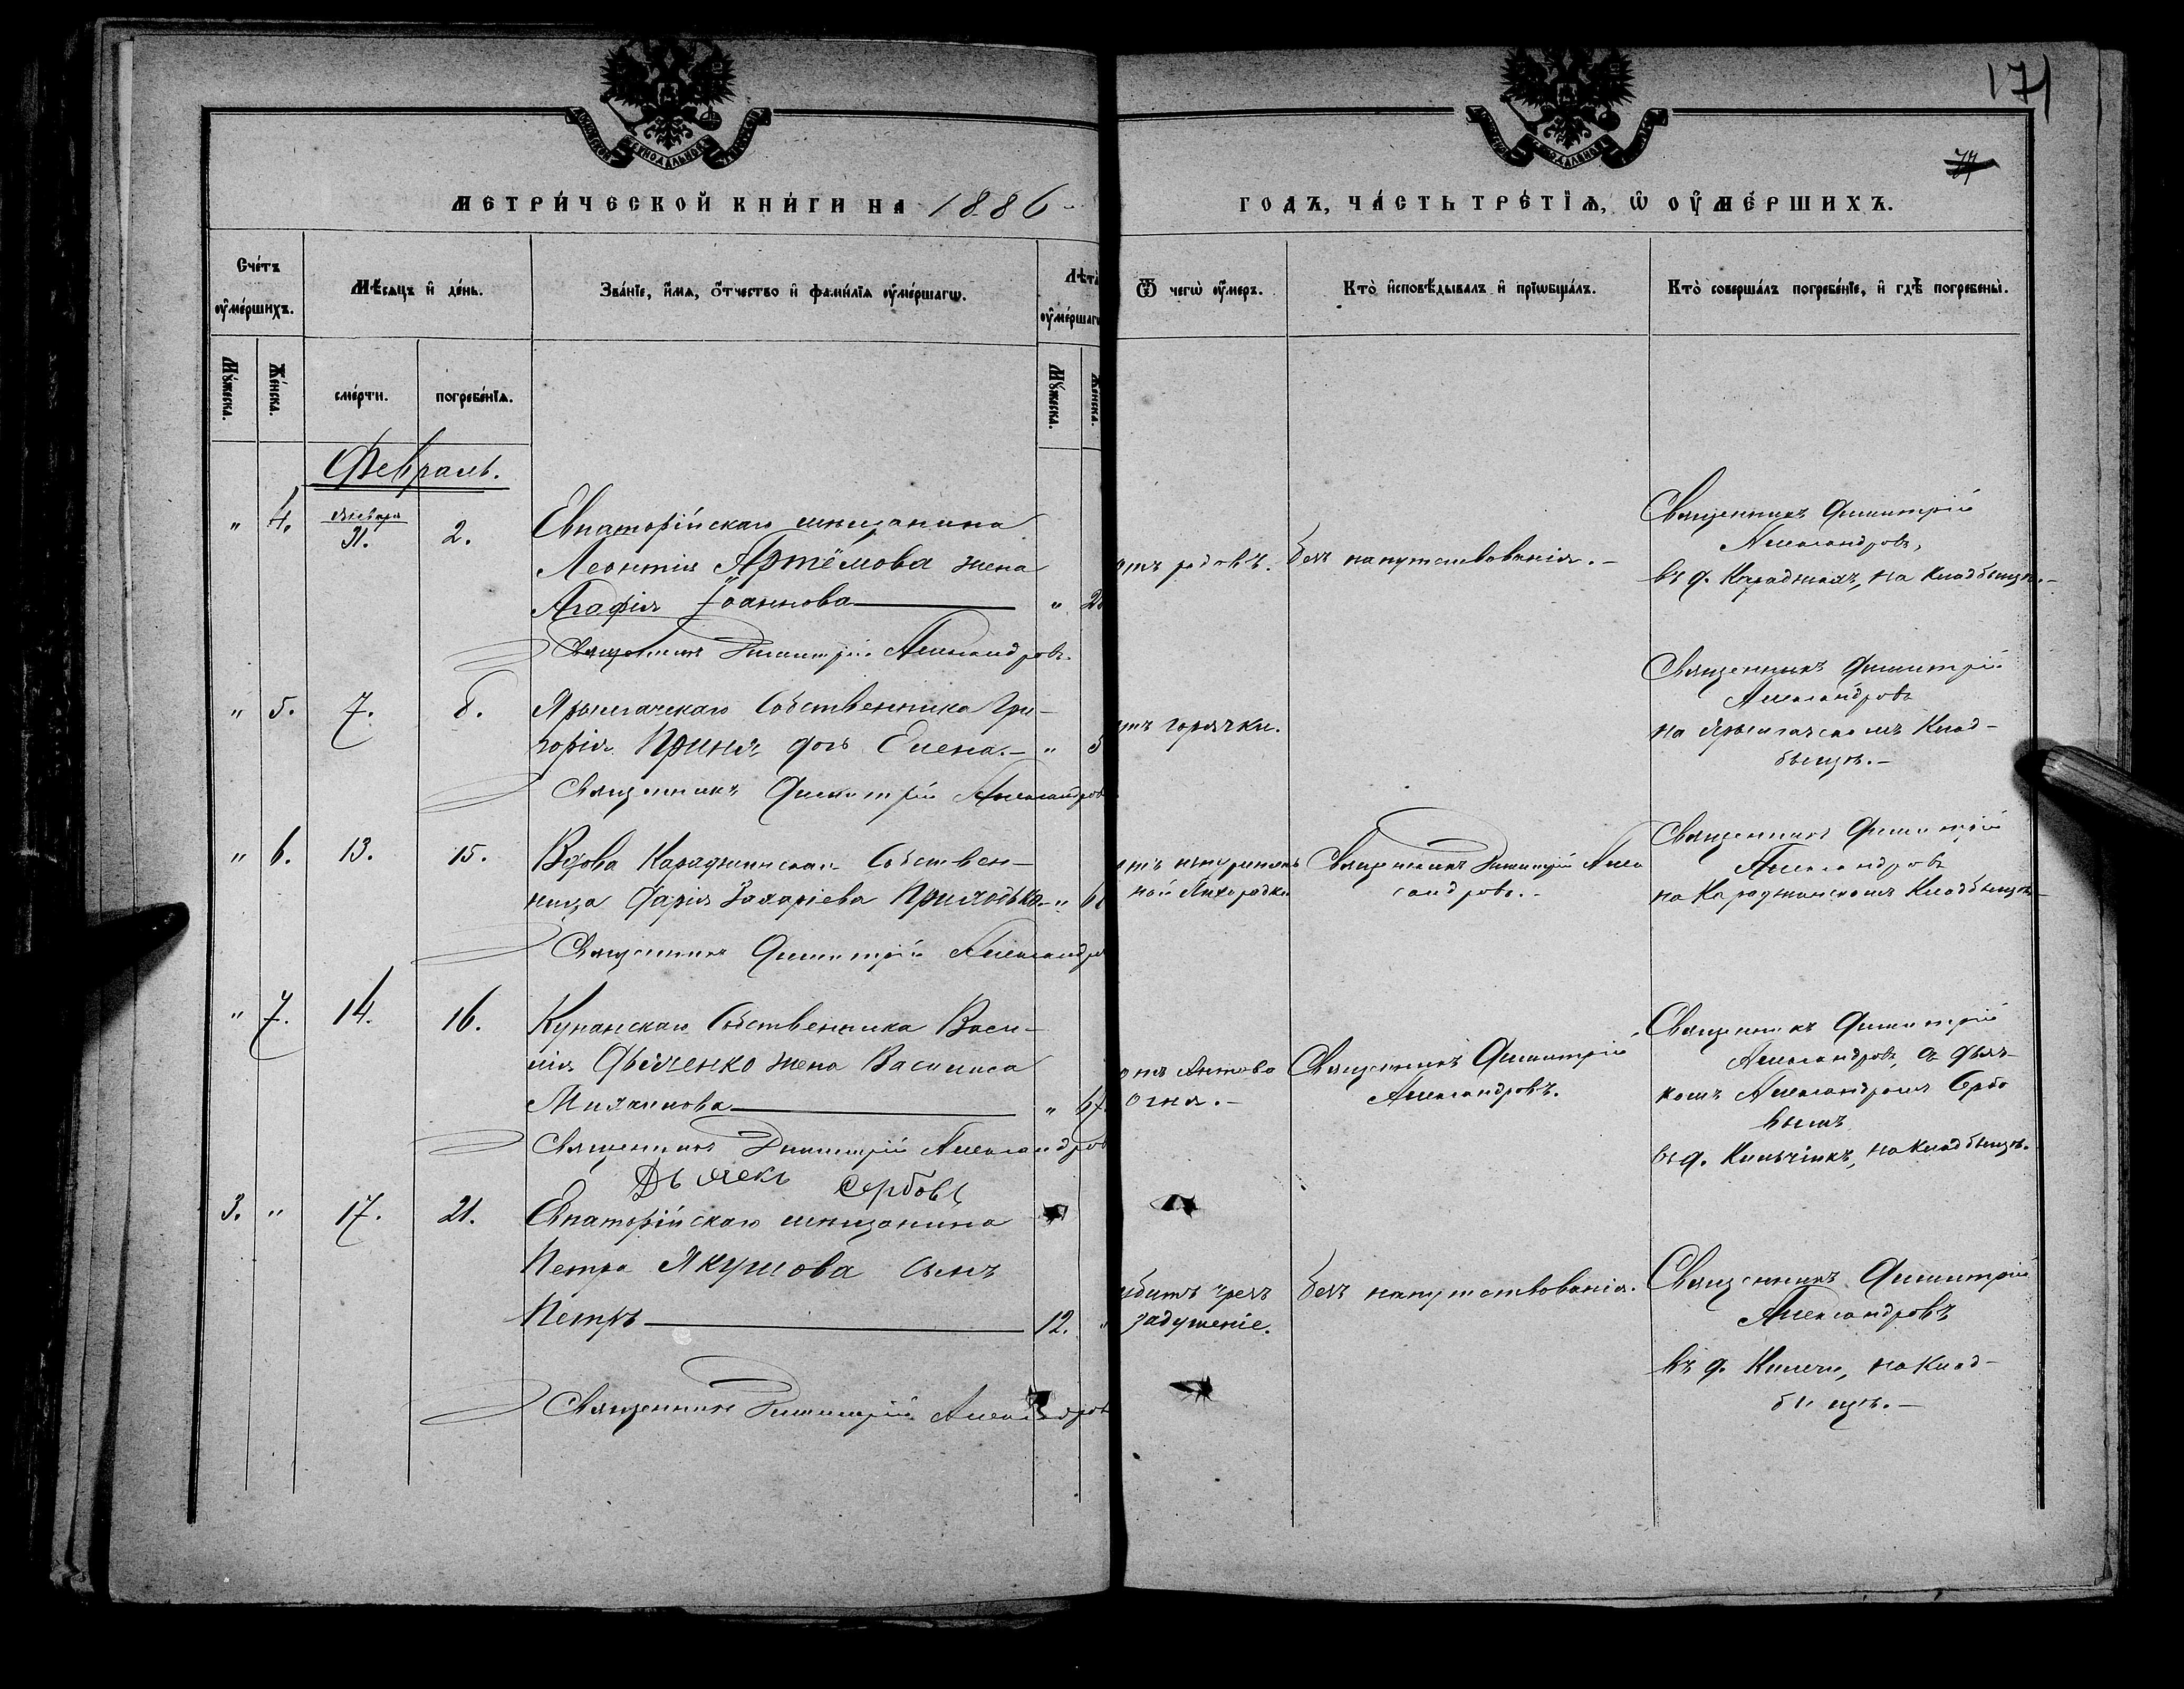 171
77
МЕТРИ́ЧЕСКОЙ КНИ́ГИ НА 1886
ГОДЪ, ЧА́СТЬ ТРЕ́ТІѦ, Ѡ ОУ҆МЕ́РШИХЪ.
Сче́тъ оу҆ме́ршихъ.
Мѣ́сѧцъ и҆ де́нь.
Зва́нїе, и҆́мѧ, о҆́тчество и҆ фамилїѧ оу҆ме́ршагѡ.
Лѣта̀ оу҆ме́ршагѡ
Ѿ чегѡ̀ оу҆́меръ.
Кто̀ и҆сповѣ́дывалъ и҆ прїѡбща́лъ.
Кто̀ соверша́лъ погребе́нїе, и҆ гдѣ̀ погребены̀.
Мꙋ́жеска.
Же́нска.
сме́рти.
погребе́нїѧ.
Мꙋ́жеска.
Же́нска.
Февраль.
" 4. Января 31. 2.
Евпаторійскаго мѣщанина
Леонтія Артёмова жена
Агафія Іоаннова "
Священникъ Димитрій Александровъ.
отъ родовъ.
безъ напутствованія.-
Священникъ Димитрій
Александровъ,
въ д. Караджахъ, на кладбищѣ.-
" 5. 7. 8.
Ярылгачскаго Собственника Гри-
горія дочь Елена.- " 5
Священникъ Димитрій Александров
отъ горячки.
Священникъ Димитрій
Александровъ
на Ярылгачскомъ Клад-
бищѣ.-
" 6. 13. 15.
Вдова Караджинская Собствен-
ница Дарія Захаріева "
Священникъ Димитрій Александро
ной Лихорадки
Священникъ Димитрій Алек
сандровъ.-
Священникъ Димитрій
Александровъ
на Караджинскомъ Кладбищѣ-
" 7. 14. 16.
Кунанскаго Собственника Васи-
лія Дьяченко жена Василиса
" 67.
Священникъ Димитрій Александров
Дьячекъ Сербовъ
отъ Антова
огня.-
Священникъ Димитрій
Александровъ.
Священникъ Димитрій
Александровъ, съ дьяч-
комъ Александромъ Серbo
вымъ
въ д. на кладбищѣ.
3. " 17. 21.
Евпаторійскаго мѣщанина
Петра Якушова сынъ
Петръ 12. "
Священникъ Димитрій Александров
убитъ чрез
задушеніе.
безъ напутствованія.
Священникъ Димитрій
Александровъ
въ д. на Клад-
бищѣ.-